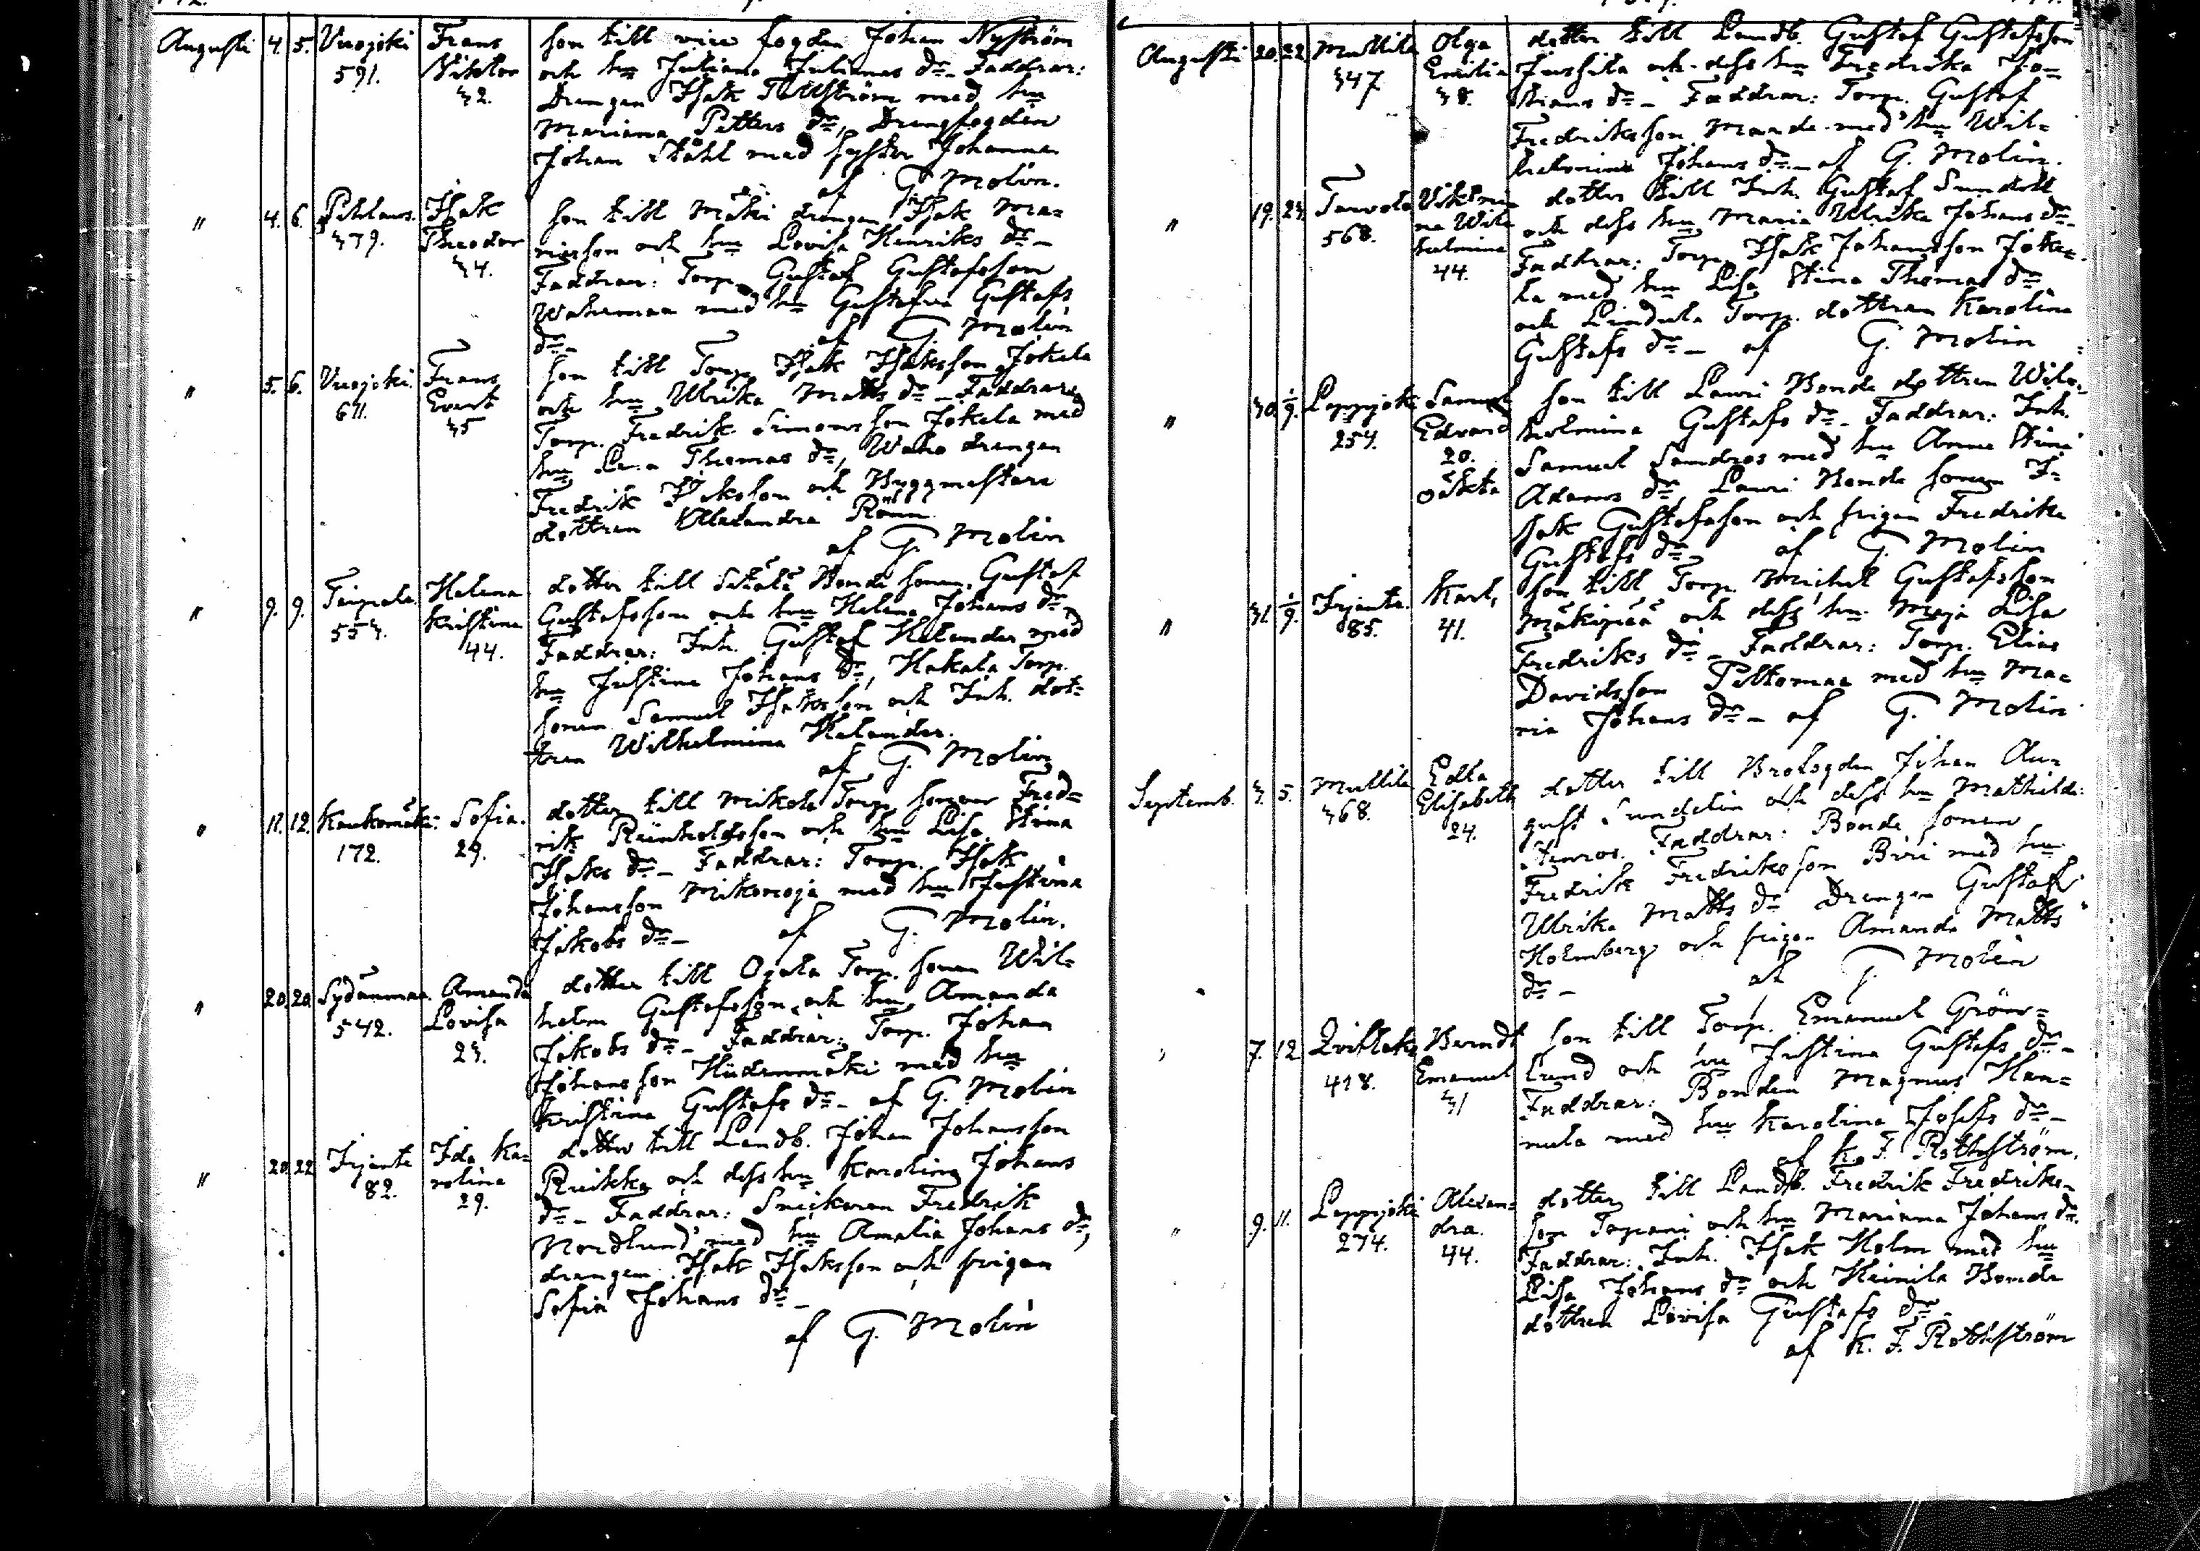 Augusti 4. 5. Vuojoki 591. Frans Viktor 32. son till vice fogden Johan Nyström
och hu Juliana Julianas dr_ Faddrar:
Drengen Isak med hu
Mariana Petters dr, Drengfogden
Johan Ståhl med syster Johanna
af G. Molin.
" 4. 6. 379. Isak Theodor 34. son till Mäki drengen Isak Ma-
riasson och hu Lovisa Henriks dr_
Faddrar: Torp. Gustaf Gustafsson
Wahermaa med hu Gustafva Gustafs
dr_ af G. Molin
" 5. 6. Vuojoki 611. Frans Evert 35 son till Torp. Isak Isaksson Jokela
och hu Ulrika Matts dr_ Faddrar:
Torp. Fredrik Simonsson Jokela med
hu Lena Thomas dr, Waho drengen
Fredrik Isaksson och Byggmästare
dottren Alexandra Rönn
af G. Molin
" 9. 9. Taipale 553. Helena Kristina 44. dotter till Bonde sonen Gustaf
Gustafsson och hu Helena Johans dr_
Faddrar: Inh. Gustaf Helander med
hu Justina Johans dr, Hakala Torp.
sonen Samuel Isaksson och Inh. dot-
tren Wilhelmina Helander.
af G. Molin
" 11. 12. Kaukomäki 172. Sofia. 29. dotter till Mikola Torp. sonen Fred-
rik Reinholdsson och hu Lisa Stina
Isaks dr_ Faddrar: Torp. Isak
Johansson Mikonoja med hu Justina
Jakobs dr_ af G. Molin.
" 20. 20. Sydänmaa 542. Amanda Lovisa 23. dotter till Ojala Torp. sonen Wil-
helm Gustafsson och hu Amanda
Jakobs dr_ Faddrar: Torp. Johan
Johansson Hiidenmäki med hu
Kristina Gustafs dr_ af G. Molin
" 20. 22 Irjanti 82. Ida Ka-
rolina 29. dotter till Landb. Johan Johansson
Ruikka och dess hu Karolina Johans
dr_ Faddrar: Snickaren Fredrik
Nordlund med hu Amalia Johans dr,
drengen Isak Isaksson och pigan
Sofia Johans dr_
af G. Molin
Augusti 20. 22 Mullila 347. Olga Emilia 38. dotter till Landb. Gustaf Gustafsson
Jussila och dess hu Fredrika Jo-
hans dr_ Faddrar: Torp. Gustaf
Fredriksson med hu Wil-
helmina Johans dr_ af G. Molin.
" 19. 23. Tarvola 568. Viktori-
na Wil-
helmina 44. dotter till Inh. Gustaf Sundell
och dess hu Maria Ulrika Johans dr_
Faddrar: Torp. Isak Johansson Joke-
la med hu Lisa Stina Thomas dr_
och Lindula Torp. dottren Karolina
Gustafs dr_ af G. Molin
" 30. 1/9. Lappijoki 254. Samuel Edvard 20. oäkta son till Lauri Bonde dottren Wil-
helmina Gustafs dr_ Faddrar: Inh.
Samuel Sandros med hu Anna Stina
Adams dr, Lauri Bonde sonen I-
sak Gustafsson och pigan Fredrika
Gustafs dr_ af G. Molin
" 31. 1/9. Irjanti 85. Karl, 41. son till Torp. Michel Gustafsson
Mäkipää och dess hu Maja Lisa
Fredriks dr_ Faddrar: Torp. Elias
Davidsson Peltomaa med hu Ma-
ria Johans dr_ af G. Molin
Septemb. 3. 5. Mullila 368. Edla Elisabeth 24. dotter till Brofogden Johan Au-
gust Sundelin och dess hu Mathilda
Faddrar: Bonde sonen
Fredrik Fredriksson Biri med hu
Ulrika Matts dr Drengen Gustaf
Holmberg och pigan Amanda Matts
dr_ af G. Molin
7. 12 418. Berndt Emanuel 31 son till Torp. Emanuel Grön-
lund och hu Justina Gustafs dr_
Faddrar: Bonden Magnus Han-
nula med hu Karolina Josefs dr_
af K. F. Rothström.
" 9. 11. Lappijoki 274. Alexan-
dra 44. dotter till Landb. Fredrik Fredriks-
son Tapani och hu Marianna Johans dr.
Faddrar: Inh. Isak Holm med hu
Lisa Johans dr och Heinilä Bonde
dottren Lovisa Gustafs dr_
af K. F. Rothström